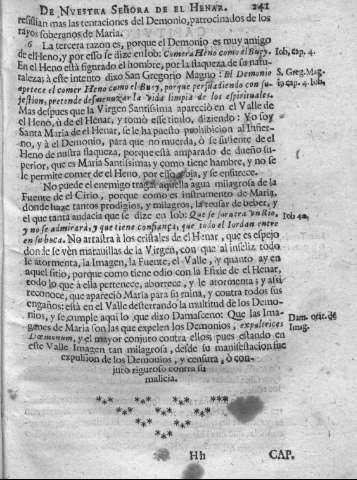 DE NUESTRA SEÑORA DE EL HENAR. 241
resistian mas las tentaciones del Demonio, patrocinados de los
rayos soberanos de Maria.
6 La tercera razon es, porque el Demonio es muy amigo
de el Heno, y por esso se dize en Iob: Comerà Heno como el Buey. Iob, cap. 4.
En el Heno està figurado el hombre, por la flaqueza de su natu-
raleza; à este intento dixo San Gregorio Magno: El Demonio S. Greg. Mag.
apetece el comer Heno como el Buey, porque persuadiendo con su cap. 4. Iob.
jestion, pretende desmenuçar la vida limpia de los espirituales.
Mas despues que la Virgen Santissima apareciò en el Valle de
Heno, ù de el Henar, y tomò esse titulo, diziendo: Yo soy
Santa Maria de el Henar, se le ha puesto prohibicion al Infier-
no, y à el Demonio, para que no muerda, ò se sustente de el
Heno de nuestra flaqueza, porque està amparado de dueño su-
perior, que es Maria Santissima; y como tiene hambre, y no se
le permite comer de el Heno, por esso se enoja, y se enfurece.
No puede el enemigo tragar aquella agua milagrosa de la
Fuente de el Cirio, porque como es instrumento de Maria,
donde haze tantos prodigios, y milagros, la reusa de beber, y
el que tanta audacia que se dize en Iob: Que se sorverà un Rio, Iob 40.
y no se admirarà, y que tiene confiança, que todo el Iordan entre
en su boca. No arrastra à los cristales de el Henar, que es espejo
donde se vèn maravillas de la Virgen, con que al infeliz todo
le atormenta, la Imagen, la Fuente, el Valle, y quanto ay en
aquel sitio, porque como tiene odio con la Efixie de el Henar,
todo lo que à ella pertenece, aborrece, y le atormenta; y assi
reconoce, que apareciò Maria para su ruina, y contra todos sus
engaños: està en el Valle desterrando la multitud de los Demo-
nios, y se cumple aqui lo que dixo Damasceno: Que las Ima- Dam. orat. de
genes de Maria son las que expelen los Demonios, expultrices Imag.
Dæmonum, y el mayor conjuro contra ellos; pues estando en
este Valle Imagen tan milagrosa, desde su manifestacion fue
expulsion de los Demonios, y censura, ò con-
juro riguroso contra su
malicia.
Hh CAP.